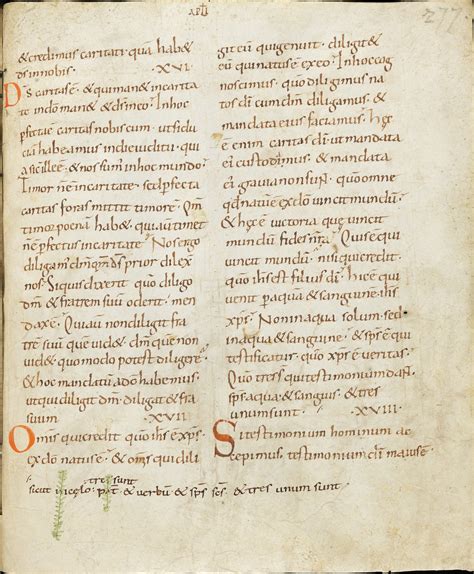 APL̄I
277
& credimus caritati quā hab&
ds in nobis. XVI.
Ds caritas ē. & qui man& in carita
te in do man& & ds in eo. In hoc
pfecta ē caritas nobiscum. ut fidu
ciā habeamus in die iudicii. qui
a sic ille ē & nos sum' in hoc mundo
Timor non ē in caritate. sed pfecta
caritas foras mittit timorē. Qm̄
timor poenā hab& qui autē tim&
non ē pfectus in caritate. Nos ergo
diligam' dm̄ qm̄ ds prior dilex
nos. Si quis dixerit quo diligo
dm̄ & fratrem suū oderit. men
dax ē. Qui autē non diligit fra
trē suū quē vid& dm̄ quē non
vid& quomodo potest diligere
& hoc mandatū ab do habemus.
ut qui diligit dm̄. diligat & fra
suum. XVII.
Omis qui credit quo ihs ē xps.
ex do natus ē. & omis qui dili
git eū qui genuit. diligit &
eū qui natus ē ex eo. In hoc cog
noscimus. quo diligimus na
tos di cum dm̄ diligamus. &
mandata eius faciamus. hęc
ē enim caritas di. ut mandata
ei' custodim'. & mandata
ei' gravia non sunt. quo omne
qd natū ē ex do vincit mundū.
& hęc ē victoria quę vincit
mundū fides nra. Quis ē qui
vincit mundum. nisi qui credit
quo ihs ē filius di. hic ē qui
venit p aquā & sanguinē ihs
xps. Non in aqua solum. sed
in aqua & sanguine. & sps ē qui
testificatur quo xps ē veritas.
Quo tres s' qui testimoniū dan
sps aqua & sanguis. & tres
unum sunt. XVIII.
Si testimonium hominum ac
cepimus. testimonium di maius ē.
tres sunt
sicut in celo. pat & verbū & sps scs. & tres unum sunt